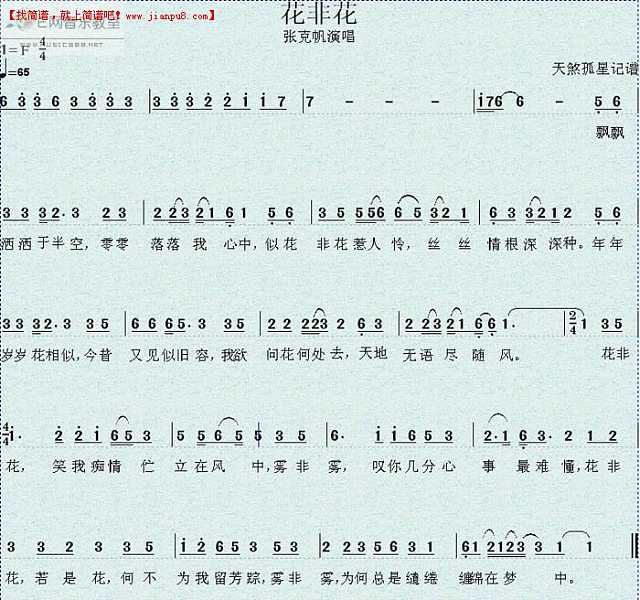 花非花
【找简谱，就上简谱吧！ www.jianpu8.com】
E网音乐教室
张克帆演唱
1=F 4/4
♩=65
天煞孤星记谱
6 3 3 6 3 3 3 3 | 3 3 3 2 2 1 1 7 | 7 － － － | 1 7 6 6 － 5 6
飘飘
3 3 3 2· 3 2 3 | 2 2 2 3 2 1 6 1 5 6 | 3 5 5 5 6 6 5 3 2 1 | 6 3 3 2 1 2 5 6
洒洒于半空，零零 落落我 心中，似花 非花惹人 怜，丝丝 情根深深种。年年
3 3 3 2· 3 3 5 | 6 6 6 5· 3 3 5 | 2 2 2 2 3 2 6 3 | 2 2 2 3 2 1 6 6 1· | 2/4 1 3 5
岁岁花相似，今昔 又见似旧容，我欲 问花何处去，天地 无语尽随风。 花非
4/4 1· 2 2 1 6 5 3 | 5 5 6 6 5 5 3 5 | 6· 1 1 6 5 6 3 | 2· 1 6 3· 2 1 2
花， 笑我痴情 忙 立在风 中，雾非 雾，叹你几分心 事 最难懂，花非
3 3 2 3 3 5 | 1 2 6 5 3 5 3 5 | 2 2 3 5 6 3 1 | 6 1 2 1 2 3 3 1 1
花，若是花，何不 为我留芳踪，雾非 雾，为何总是缱绻 缠绵在梦 中。